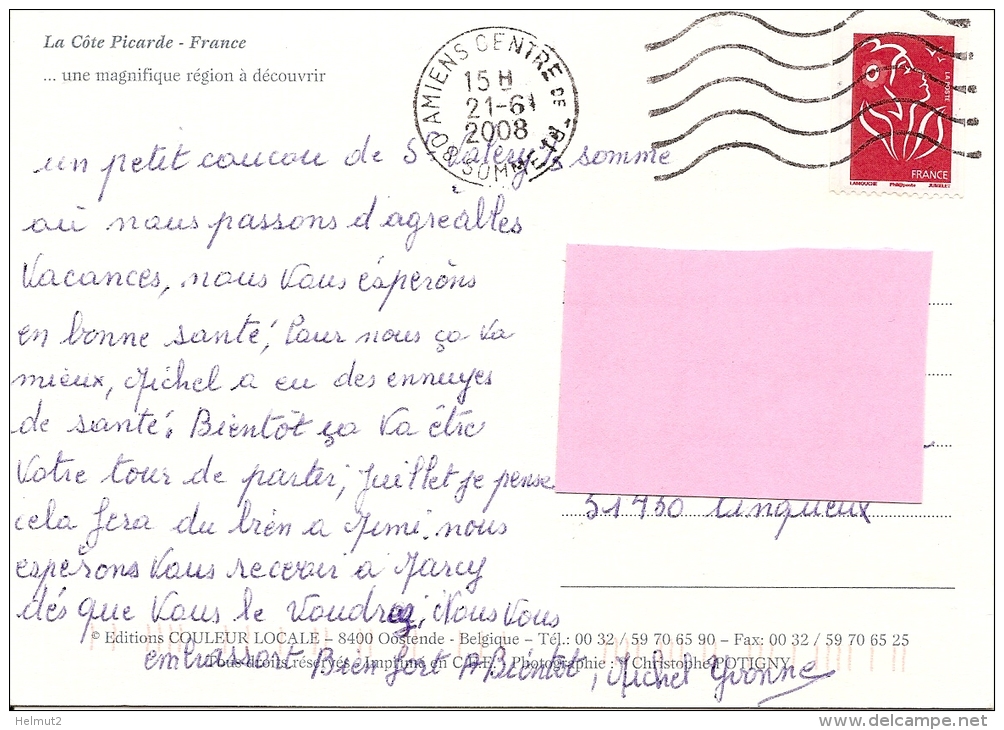 La Côte Picarde - France
... une magnifique région à découvrir
AMIENS CENTRE DE TRI
15 H
21-6
2008
80 SOMME
LA POSTE
FRANCE
LAMOUCHE Philippe JUMELET
un petit coucou de S Valéry s somme
où nous passons d'agréables
Vacances, nous Vous éspèrons
en bonne santé, Pour nous ça Va
mieux, Michel a eu des ennuyes
de santé. Bientôt ça Va être
Votre tour de partir, Juillet je pense
cela fera du bien a Mimi. nous
espèrons Vous recevoir a Marcy
dés que Vous le Voudrez, Nous Vous
embrassons Bien fort A Bientot, Michel Yvonne
51430 Tinqueux
© Editions COULEUR LOCALE – 8400 Oostende - Belgique – Tél.: 00 32 / 59 70 65 90 – Fax: 00 32 / 59 70 65 25
Tous droits réservés - Imprimé en C.E.E. - Photographie : Christophe POTIGNY
Helmut2
delcampe.net